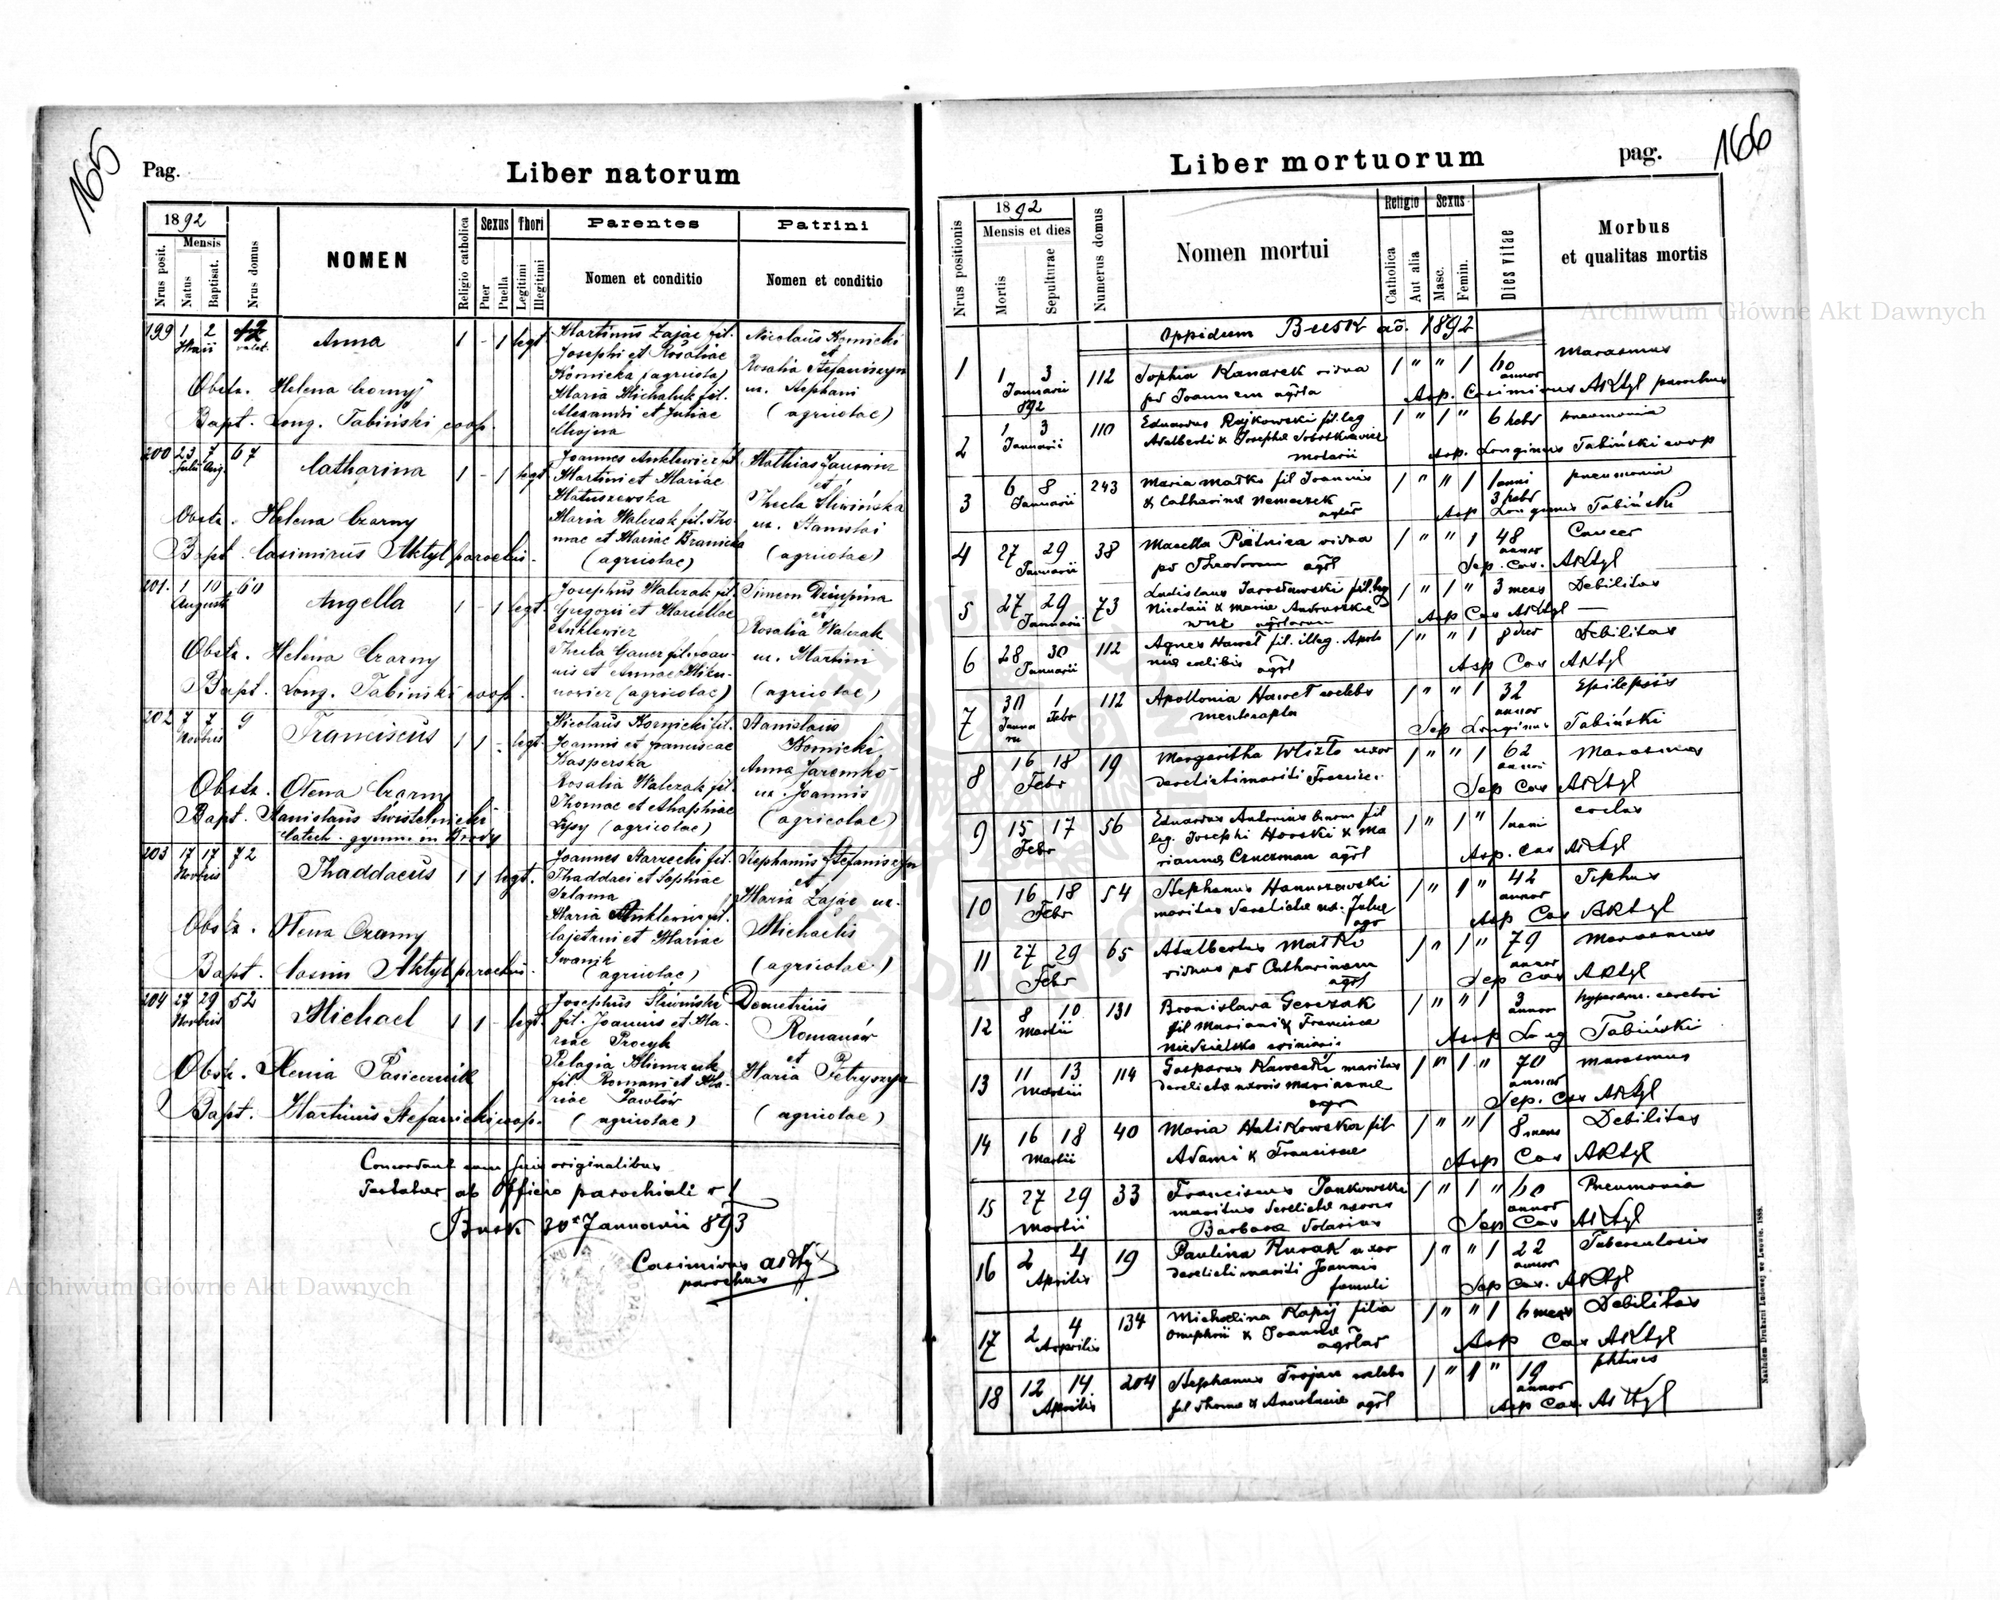 165
Pag.
Liber natorum
1892
Nrus posit.
Mensis
Natus
Baptisat.
Nrus domus
NOMEN
Religio catholica
Sexus
Puer
Puella
Thori
Legitimi
Illegitimi
Parentes
Nomen et conditio
Patrini
Nomen et conditio
199 1 2 Anna 1 - 1 legt.
Martinus Zając fil.
Josephi et Rosaliae
Kornicka (agricola)
Maria Michaluk fil.
Alexandri et Juliae
Nicolaus Kornicki
et
Rosalia Stefaniszyn
ux. Stephani
(agricolae)
Obstr. Helena Czorny
Bapt. Long. Tabiński coop.
200 23 7 67 Catharina 1 - 1 legt
Julii Aug.
Joannes Anklewicz fil
Martini et Mariae
Matuszewska
Maria Walczak fil. Tho-
mae et Mariae Branicka
(agricolae)
Mathias Janowicz
et
Thecla Śliwińska
ux. Stanislai
(agricolae)
Obstr. Helena Czorny
Bapt. Casimirus Aktyl parochus.
201. 1 10 60 Angella 1 - 1 legt.
Augusti
Josephus Walczak fil.
Gregorii et Mariellae
Anklewicz
Simeon Dziupina
et
Rosalia Walczak
ux. Martini
(agricolae)
Obstr. Helena Czorny
Bapt. Long. Tabiński coop.
202 7 7 9 Franciscus 1 1 - legt.
Novbris
Nicolaus Kornicki fil.
Joannis et Franciscae
Kasperska
Rosalia Walczak fil.
Thomae et Ahaphiae
Łysy (agricolae)
Stanislaus
Kornicki
Anna Jaremko
ux. Joannis
(agricolae)
Obstr. Olena Czorny
Bapt. Stanislaus Świstelnicki
Catech. gymn. in Brody
203 17 17 72 Thaddaeus 1 1 legt.
Novbris
Joannes Starzecki fil.
Thaddaei et Sophiae
Szlama
Maria Anklewicz fil.
Cajetani et Mariae
Iwanik
(agricolae)
Stephanus Stefaniszyn
et
Maria Zając ux.
Michaelis
(agricolae)
Obstr. Olena Czorny
Bapt. Casim Aktyl parochus.
204 27 29 52 Michael 1 1 - legt.
Novbris
Josephus Śliwiński
fil. Joannis et Ma-
riae Procyk
Pelagia Klimczuk
fil. Romani et Ma-
riae Pawlów
(agricolae)
Demetrius
Romanów
et
Maria Petryszyn
(agricolae)
Obstr. Xenia Pasicznik
Bapt. Martinus Stefanicki coop.
Concordant cum suis originalibus
Testatur ab Officio parochiali r l
Busk 20 Januarii 893
Casimirus Aktyl
parochus
Liber mortuorum
pag.
166
Nrus positionis
1892
Mensis et dies
Mortis
Sepulturae
Numerus domus
Nomen mortui
Religio
Catholica
Aut alia
Sexus
Masc.
Femin.
Dies vitae
Morbus
et qualitas mortis
Oppidum Busk aõ. 1892
1 1 3 112 Sophia Kanarek vidua 1 " " 1 60 Marasmus
Januarii annor
892 po Joannem agrla Asp. Casimirus Aktyl parochus
2 1 3 110 Eduardus Rajkowski fil. leg 1 " 1 " 6 hebr pneumonia
Januarii
Asp. Longinus Tabiński coop
3 6 8 243 Maria Matko fil Joannis 1 " " 1 1 anni pneumonia
Januarii & Catharina Nemeczek 3 hebr
Asp Longinus Tabiński
4 27 29 38 Marella vidua 1 " " 1 48 Cancer
Januarii po Theodorum agrl annor
Sep. Cas. Aktyl
5 27 29 73 Ladislaus Jarosławski fil. leg 1 " 1 " 3 mens Debilitas
Januarii Nicolaii & Maria
Asp Cas Aktyl
6 28 30 112 Agnes Hawel fil. illeg. Apolo 1 " " 1 8 dier Debilitas
Januarii niae celibis agrl Asp Cas Aktyl
7 30 1 112 Apollonia Hawel celebs 1 " " 1 32 Epilepsis
Janua Febr mentecapta annor
rii Sep Longinus Tabiński
8 16 18 19 Margaritha uxor 1 " " 1 62 Marasmus
Febr derelicti mariti annor
Sep Cas Aktyl
9 15 17 56 Eduardus Antonius binom fil 1 " 1 " 1 anni
Febr leg. Josephi & Ma
riannae Czuczman agrl Asp. Cas Aktyl
10 16 18 54 Stephanus Hanuszewski 1 " 1 " 42 Tiphus
Febr maritus derelicta ux. Julia annor
agr Asp Cas Aktyl
11 27 29 65 Adalbertus Matko 1 " 1 " 79 Marasmus
Febr viduus po Catharinam annor
agrl Sep Cas Aktyl
12 8 10 131 Bronislava Gerczak 1 " " 1 3 hyperaem. cerebri
Martii fil Mariani & Francisca annor
Asp Long Tabiński
13 11 13 114 Gasparus Kawecki maritus 1 " 1 " 70 marasmus
Martii derelicta uxoris Mariannae annor
agr Sep. Cas Aktyl
14 16 18 40 Maria Halikowska fil 1 " " 1 8 mens Debilitas
Martii Adami & Franciscae Asp Cas Aktyl
15 27 29 33 Franciscus Jankowski 1 " 1 " 60 Pneumonia
Martii maritus derelicta uxoris annor
Barbara Sep Cas Aktyl
16 2 4 19 Paulina Kurak uxor 1 " " 1 22 Tuberculosis
Aprilis derelicti mariti Joannis annor
famuli Sep Cas. Aktyl
17 2 4 134 Michalina Kapij filia 1 " " 1 6 mens Debilitas
Aprilis Onuphrii & Joanna
agrlar Asp Cas Aktyl
18 12 14 204 Stephanus Trojan celebs 1 " 1 " 19 phtisis
Aprilis fil Thoma & Anastasia agrl annor
Asp Cas. Aktyl
Nakładem Drukarni Ludowej we Lwowie. 1888.
Archiwum Główne Akt Dawnych
Archiwum Główne Akt Dawnych